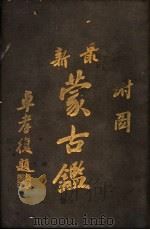 附圖
最新
蒙古鑑
卓孝復題